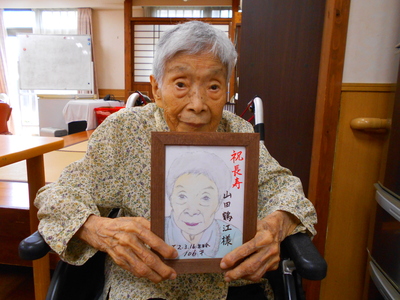 祝長寿
山田鶴江様
106才